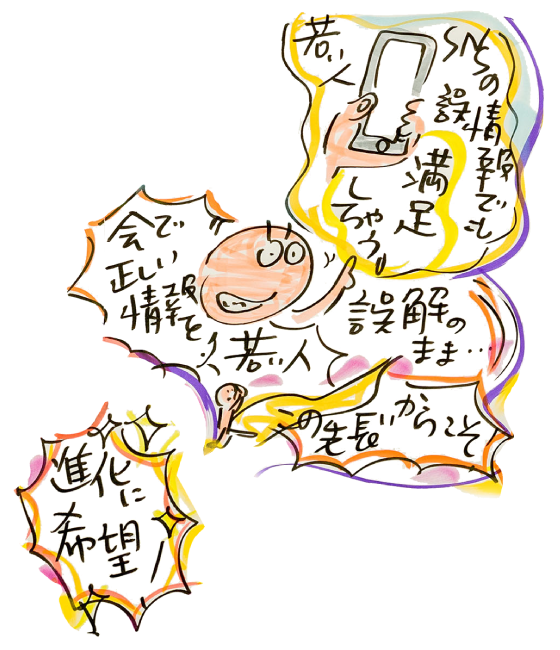 若い人
SNSの
誤情報でも
満足
しちゃう
会で
正しい
情報を
若い人
誤解の
まま…
この先長いからこそ
進化に
希望!